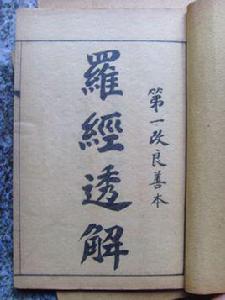 第一改良善本
羅經透解